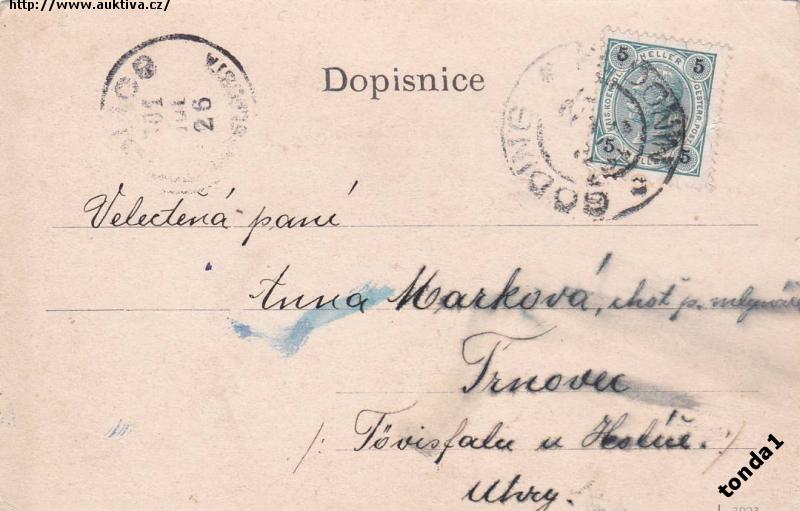 http://www.auktiva.cz/
Dopisnice
5 HELLER 5
KAIS. KOENIGL. OESTERR. POST
5 HELLER 5
GÖDING
26
Velectěná paní
Anna Marková, choť p. mlynáře
Trnovec
/: Tövisfalu u Holíče. :/
Uhry.
tonda1